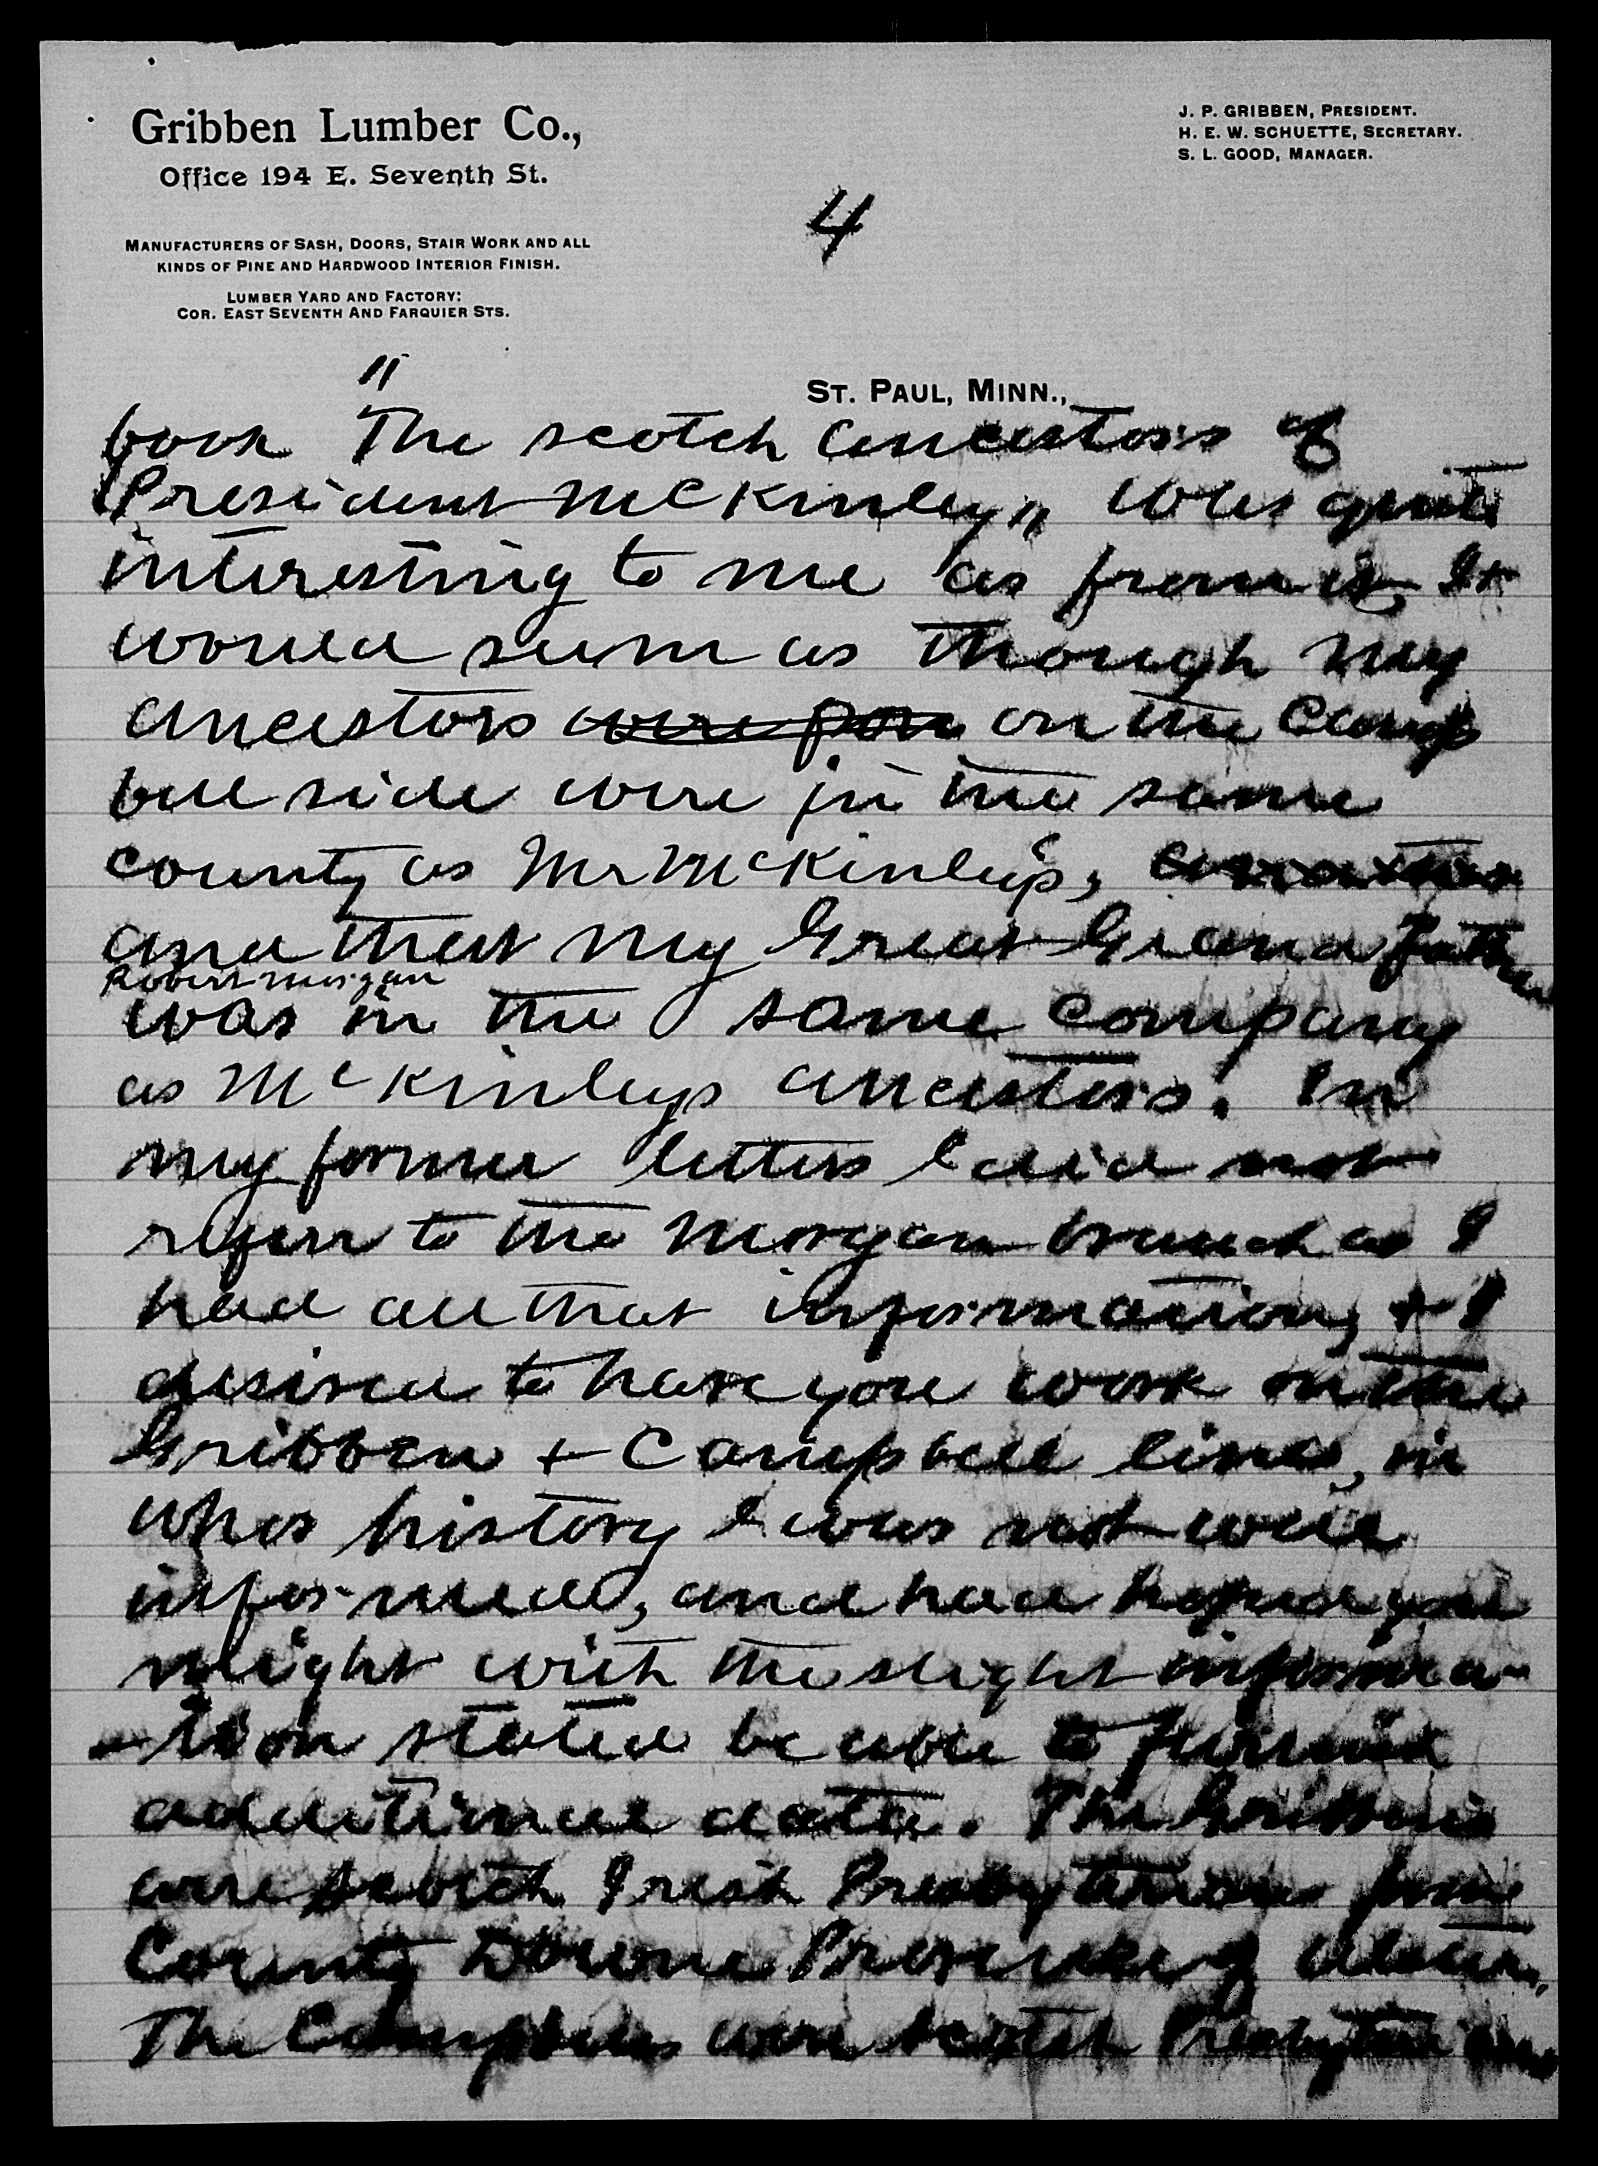 Gribben Lumber Co.,
Office 194 E. Seventh St.
MANUFACTURERS OF SASH, DOORS, STAIR WORK AND ALL
KINDS OF PINE AND HARDWOOD INTERIOR FINISH.
LUMBER YARD AND FACTORY:
COR. EAST SEVENTH AND FARQUIER STS.
J. P. GRIBBEN, PRESIDENT.
H. E. W. SCHUETTE, SECRETARY.
S. L. GOOD, MANAGER.
4
ST. PAUL, MINN.,
book "The scotch ancestors of
President McKinley" was quite
interesting to me as from it, It
would seem as though my
ancestors were from on the Camp
bell side were in the same
county as Mr McKinley's,
and that my Great Grand father
Robert Morgan
was in the same company
as McKinleys ancestors. In
my former letters I did not
referr to the Morgan branch as I
had all that information, + I
desired to have you work on the
Gribben + Campbell lines, in
whos history I was not well
informed, and had hoped you
might with the slight informa-
-tion stated be able to furnish
additional data. The Gribbens
were Scotch Irish Presbyterians from
County Downe Province of Ulster.
The Campbells were Scotch Presbyterians